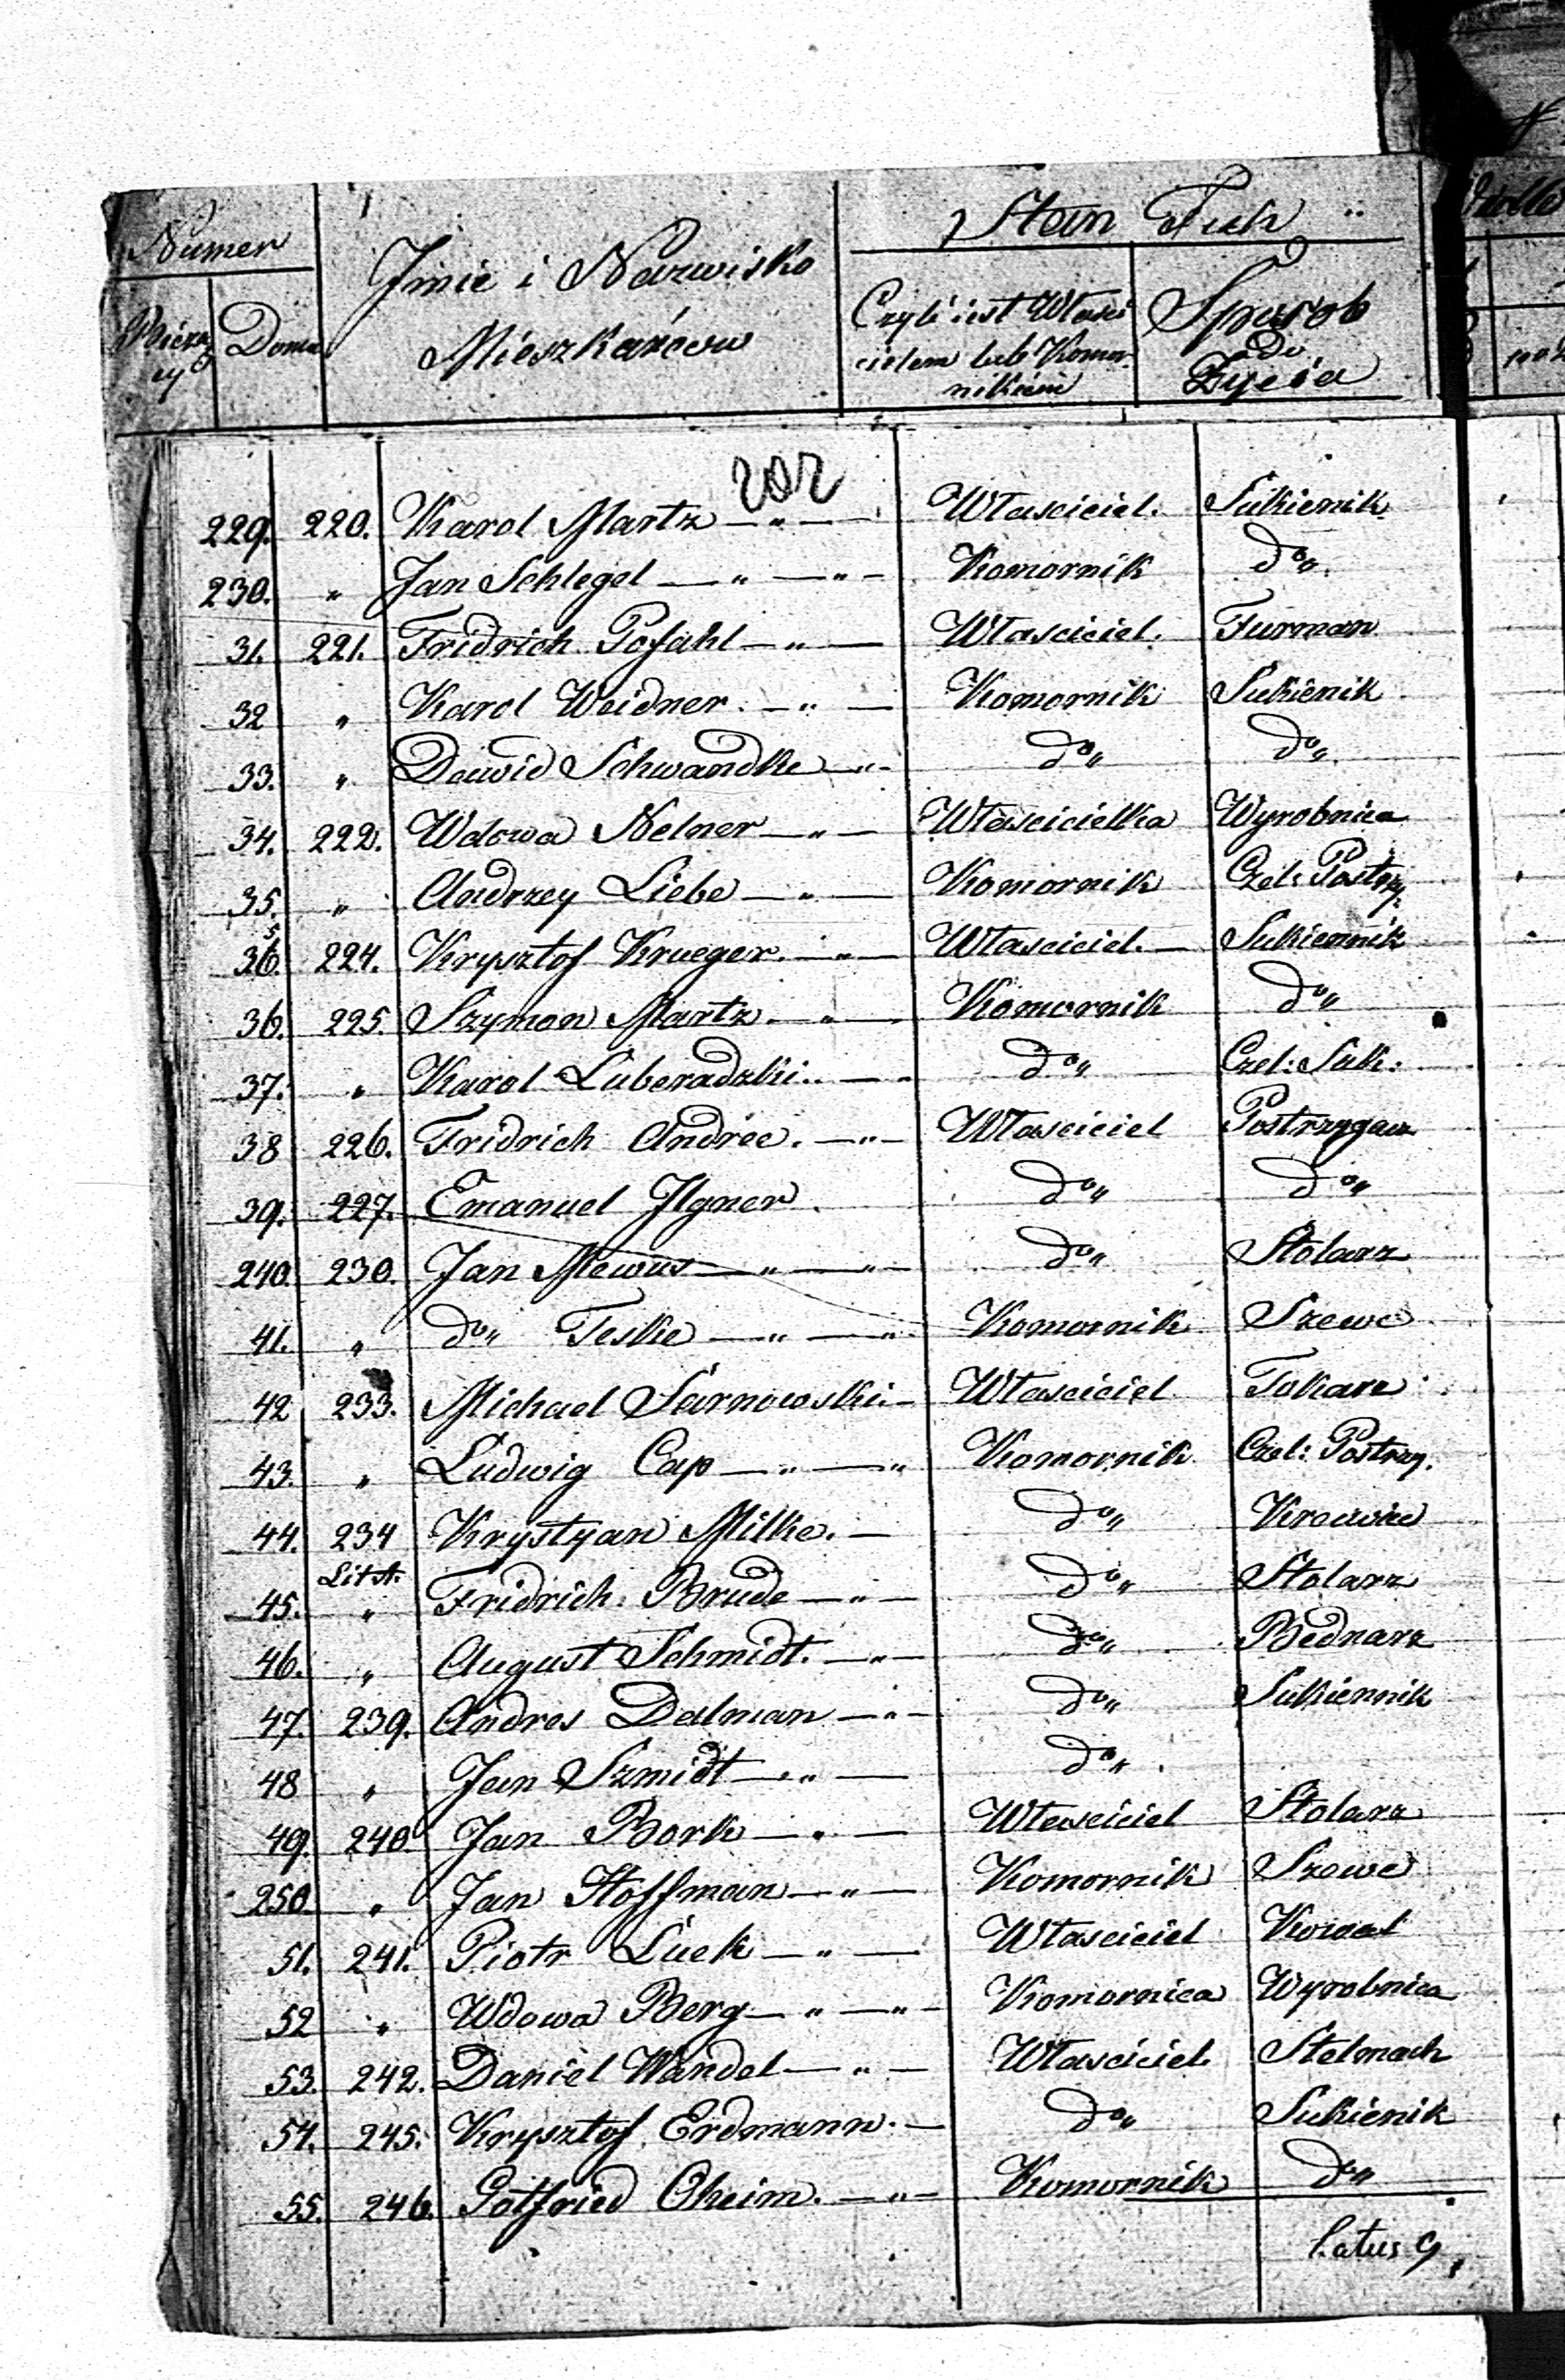 Numer
Bieżący
Domu
Jmie i Nazwisko
Mieszkańców
Stan Tych
Czyli iest Właści
cielem lub Komor
nikiem
Sposob
do
Życia
202
229. 220. Karol Martz — " — Własciciel. Sukiennik
230. " Jan Schlegel — " — " — Komornik do"
31. 221. Fridrich Pofahl — " — Własciciel. Furman
32 " Karol Weidner. — " — Komornik Sukienik
33. " Dawid Schwandke — " — do" do"
34. 222. Wdowa Nelner — " — Włascicielka Wyrobnica
35. " Andrzey Liebe — " — Komornik Czel: Postrzy:
36. 5 224. Krysztof Krueger. — " — Własciciel. — Sukiennik
36. 225. Szymon Martz. — " — Komornik do"
37. " Karol Luberadzki.. — do" Czel: Suk:
38 226. Fridrich Andrée. — " — Własciciel Postrzygacz
39. 227. Emanuel Jlgner. do" do"
240. 230. Jan Mewus — " — " — do" Stolarz
41. " do" Teske — " — " Komornik Szewc
42 233. Michael Sarnowski. — Własciciel Tokarz
43. " Ludwig Cap — " — " Komornik Czel: Postrzy.
44. 234 Krystyan Milke. — do" Krawiec
Lit A.
45. " Fridrich Brude — " — do" Stolarz
46. " August Schmidt. — " — do" Bednarz
47. 239. Andres Dalman — " — do" Sukiennik
48 " Jan Szmidt — " — do"
49. 240. Jan Bork — " — Własciciel Stolarz
250 " Jan Hoffman — " — Komornik Szewc
51. 241. Piotr Lück — " — Własciciel Kowal
52 " Wdowa Berg — " — " — Komornica Wyrobnica
53. 242. Daniel Wandel — " — Własciciel Stelmach
54. 245. Krysztof Erdmann. — do" Sukienik
55. 246. Gotfried Oheim. — " — Komornik do"
Latus 9.